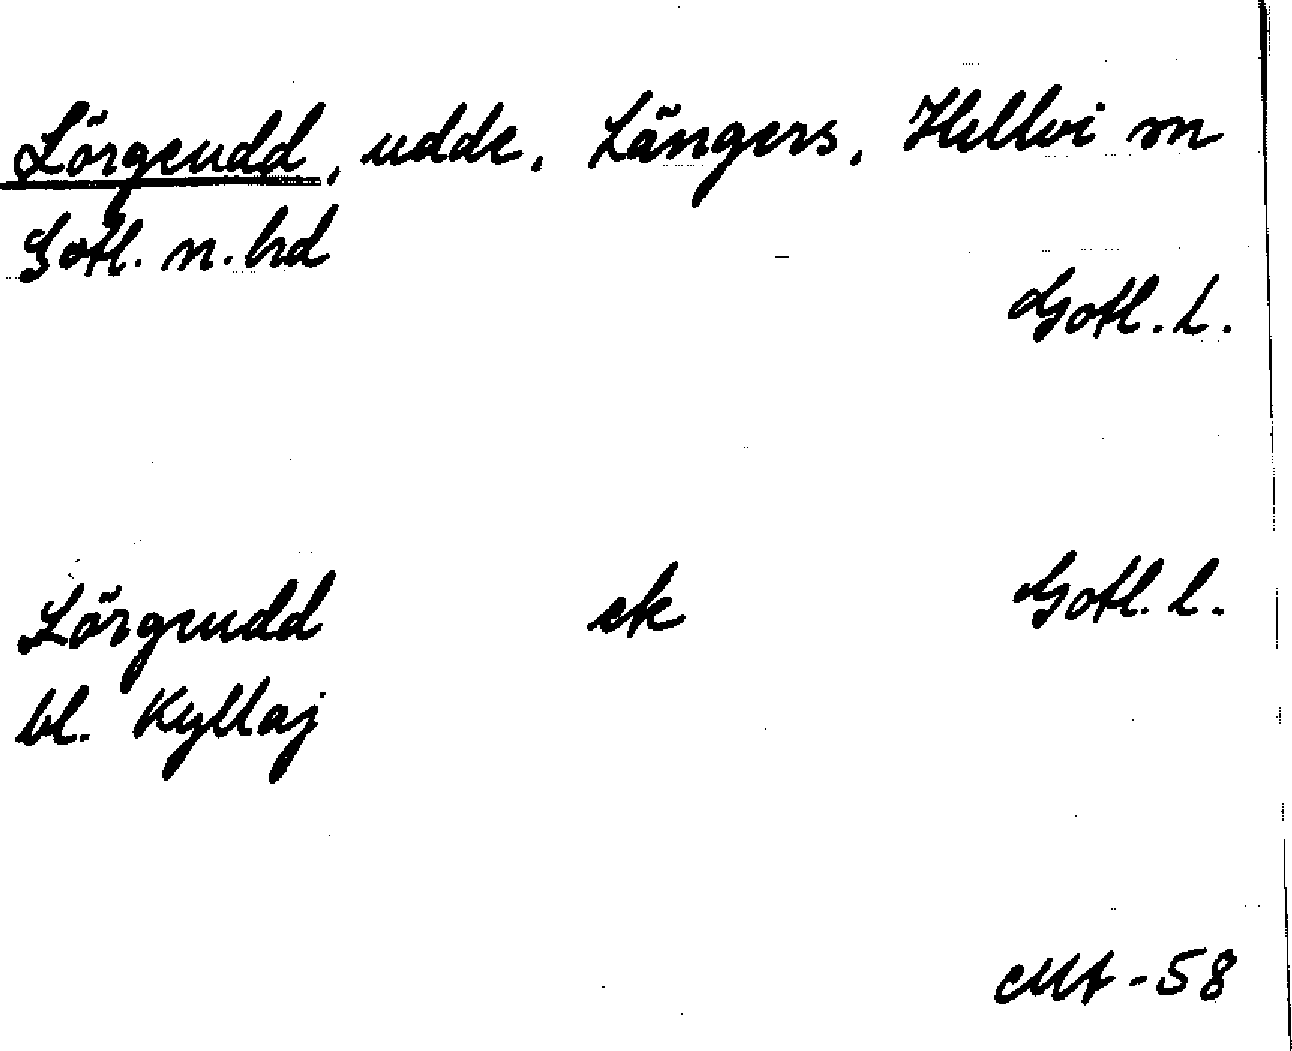 Lörgeudd, udde, Längers, Hellvi sn
Gotl. n. hd
Gotl. l.
Lörgeudd ek Gotl. l.
bl. Kyllaj
-58